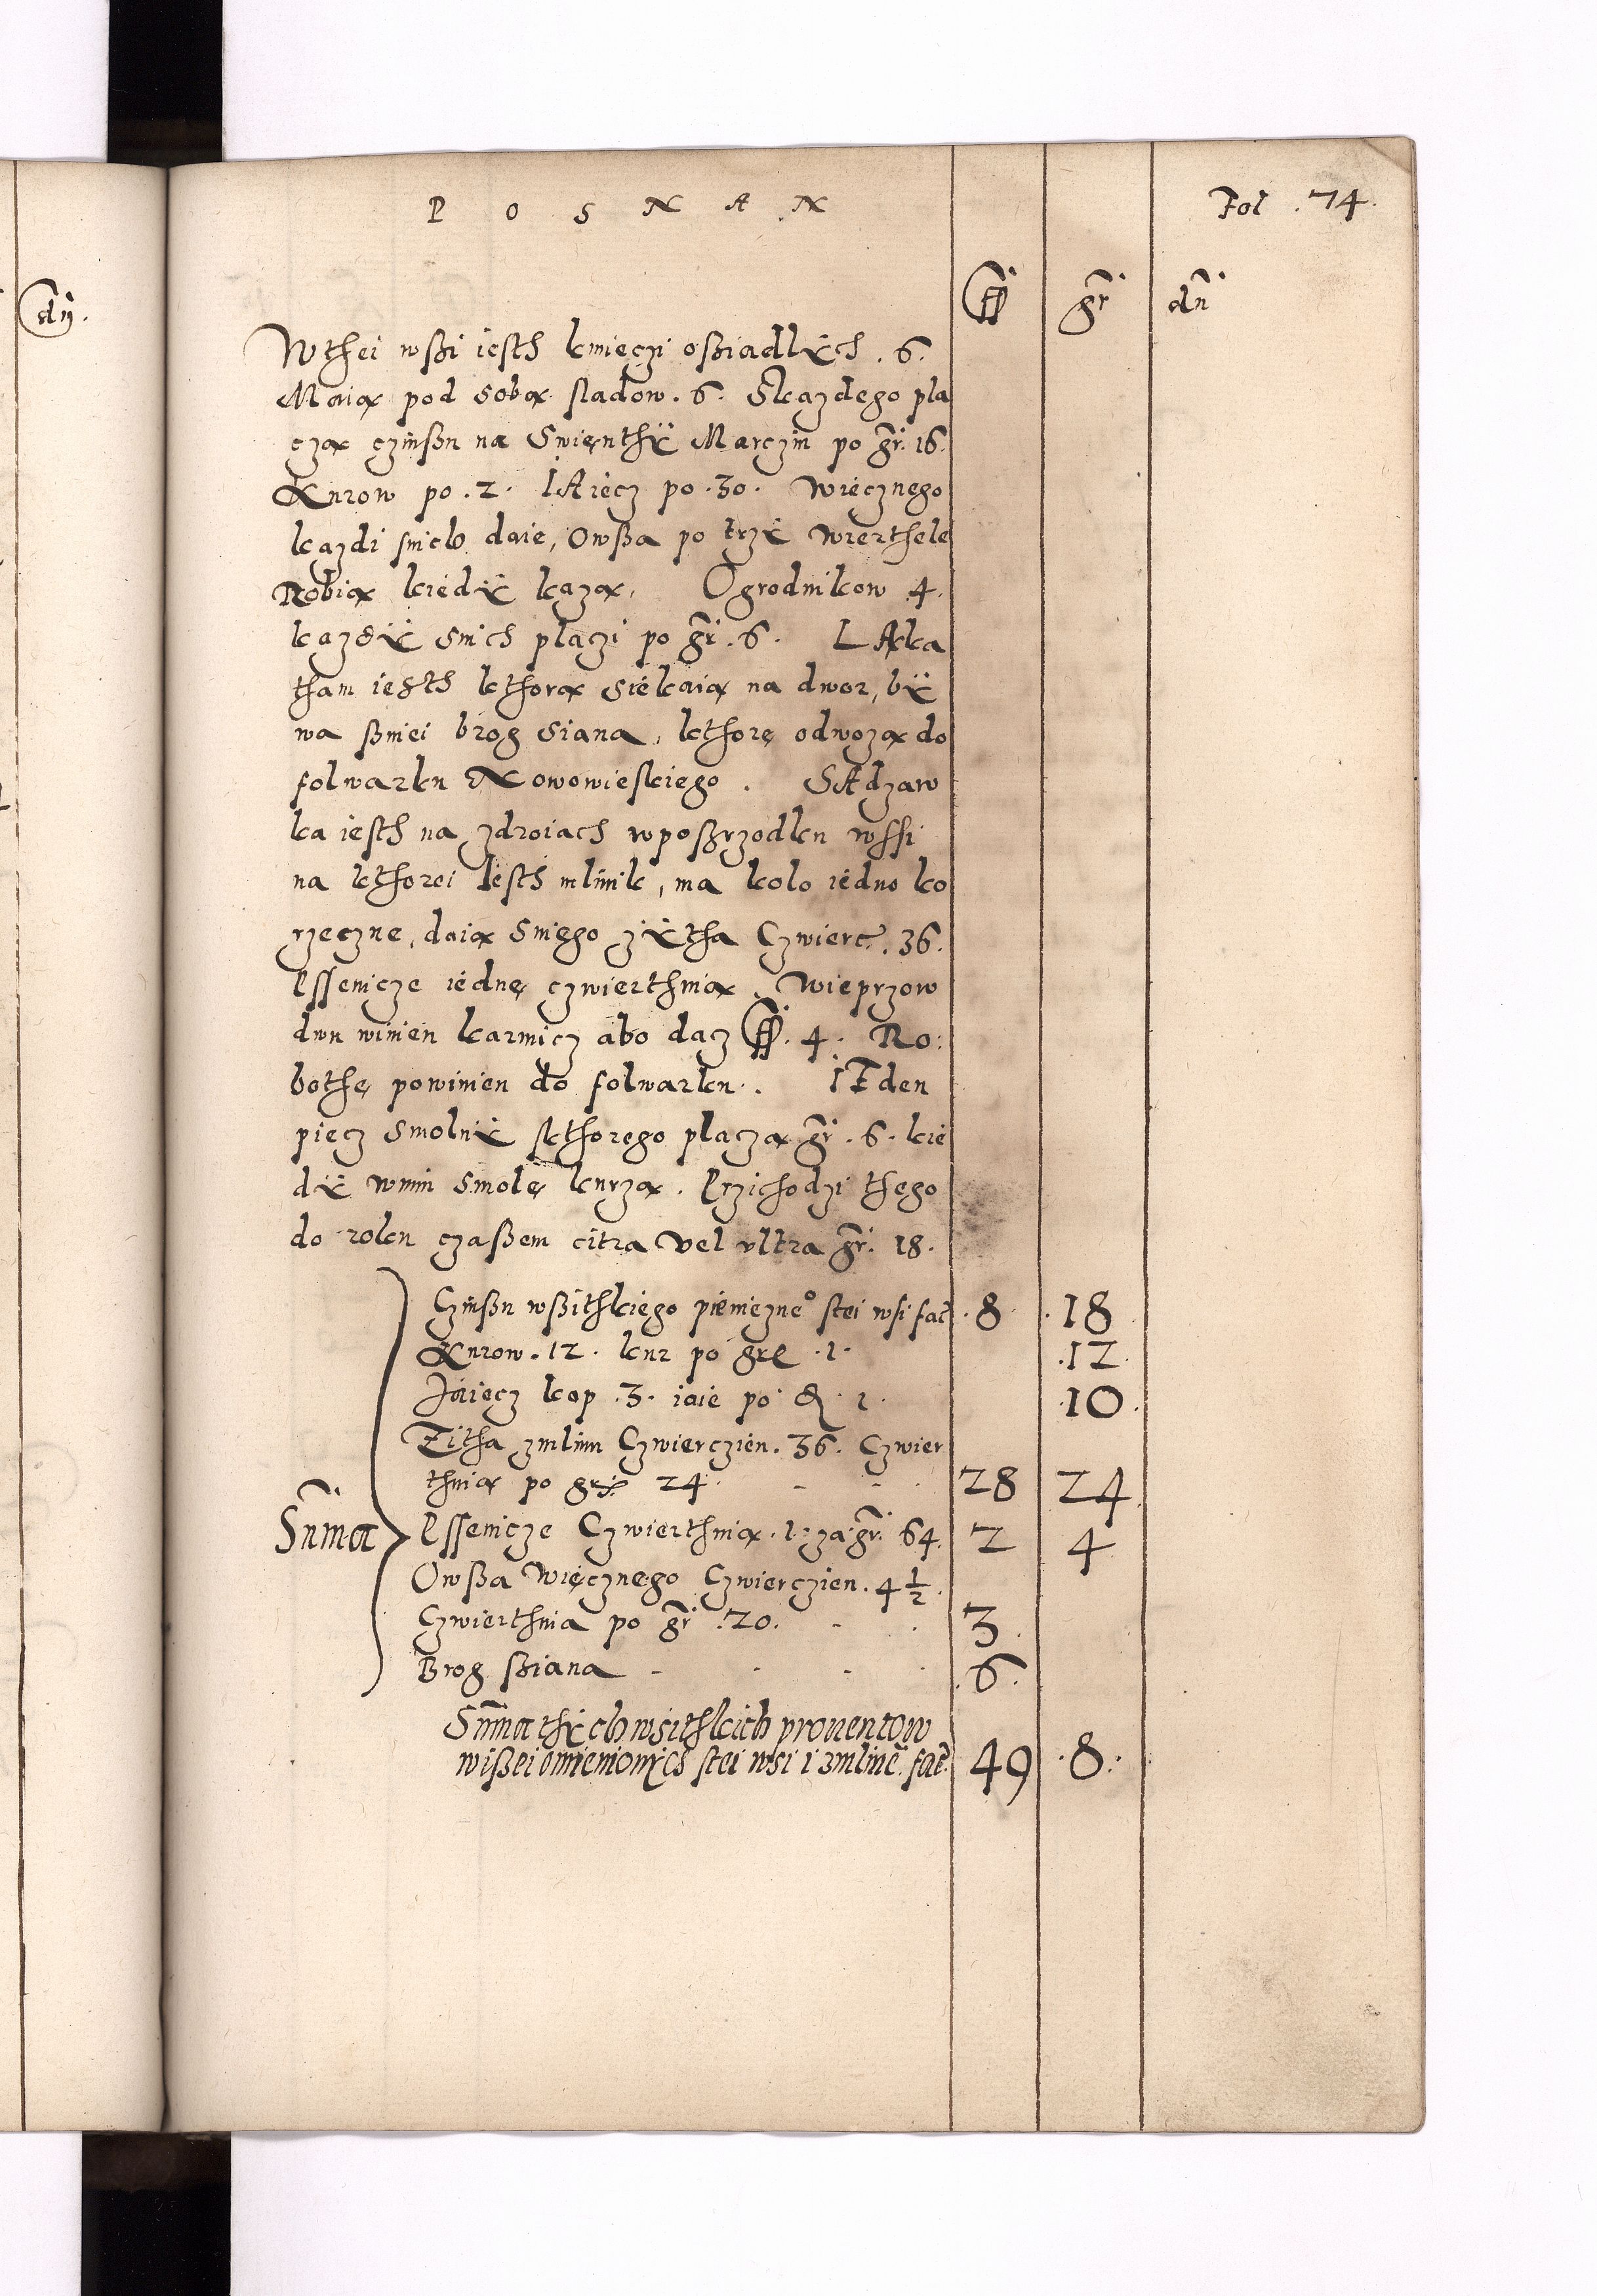 P O S N A N
Fol . 74.
ff gr dn
dn.
W thei wßi iesth kmieczi oßiadlÿch . 6.
Maią pod sobą sladow . 6. Skazdego pla
czą czinßu na Swięnthÿ Marczin po gr. 16.
Kurow po . 2 . IAiecz po . 30 . Wiecznego
kazdi snich daie, Owßa po trzÿ wierthele
Robią kiedÿ kazą, Ogrodnikow 4.
kazdÿ snich placzi po gr . 6 . LAka
tham iesth kthorą siekaią na dwor, bÿ
wa ßniei brog siana, kthorę odwozą do
folwarku Nowowieskiego . SAdzaw
ka iesth na zdroiach wpoßrzodku wssi
na kthorei iesth mlinik, ma kolo iedno ko
rzeczne, daią sniego zÿtha Czwierc . 36.
Pssenicze iednę czwierthnią . Wieprzow
dwu winien karmicz abo dacz ff . 4 . Ro:
bothę powinien do folwarku . IEden
piecz smolnÿ skthorego placzą gr . 6 . kie
dÿ wnim smolę kurzą . Przichodzi thego
do roku czaßem citra vel ultra gr . 18 .
Czinßu wßithkiego pieniezne° stei wsi fat . 8 . 18
Kurow . 12 . kur po gr . 1 . . 12 .
Jaiecz kop . 3 . iaie po d . 1 . 10 .
Zitha zmlinu Czwierczien . 36 . Czwier
thnią po gr 24 . 28 24
Suma Pssenicze Czwierthnią . 1 . za gr. 64 . 2 4
Owßa Wiecznego Czwierczien . 4 1/2 .
Czwierthnia po gr . 20 . 3
Brog ßiana . 6 .
Suma thÿch wsithkich prouentow
wißei omienionÿch stei wsi i zmline fat . 49 . 8 .